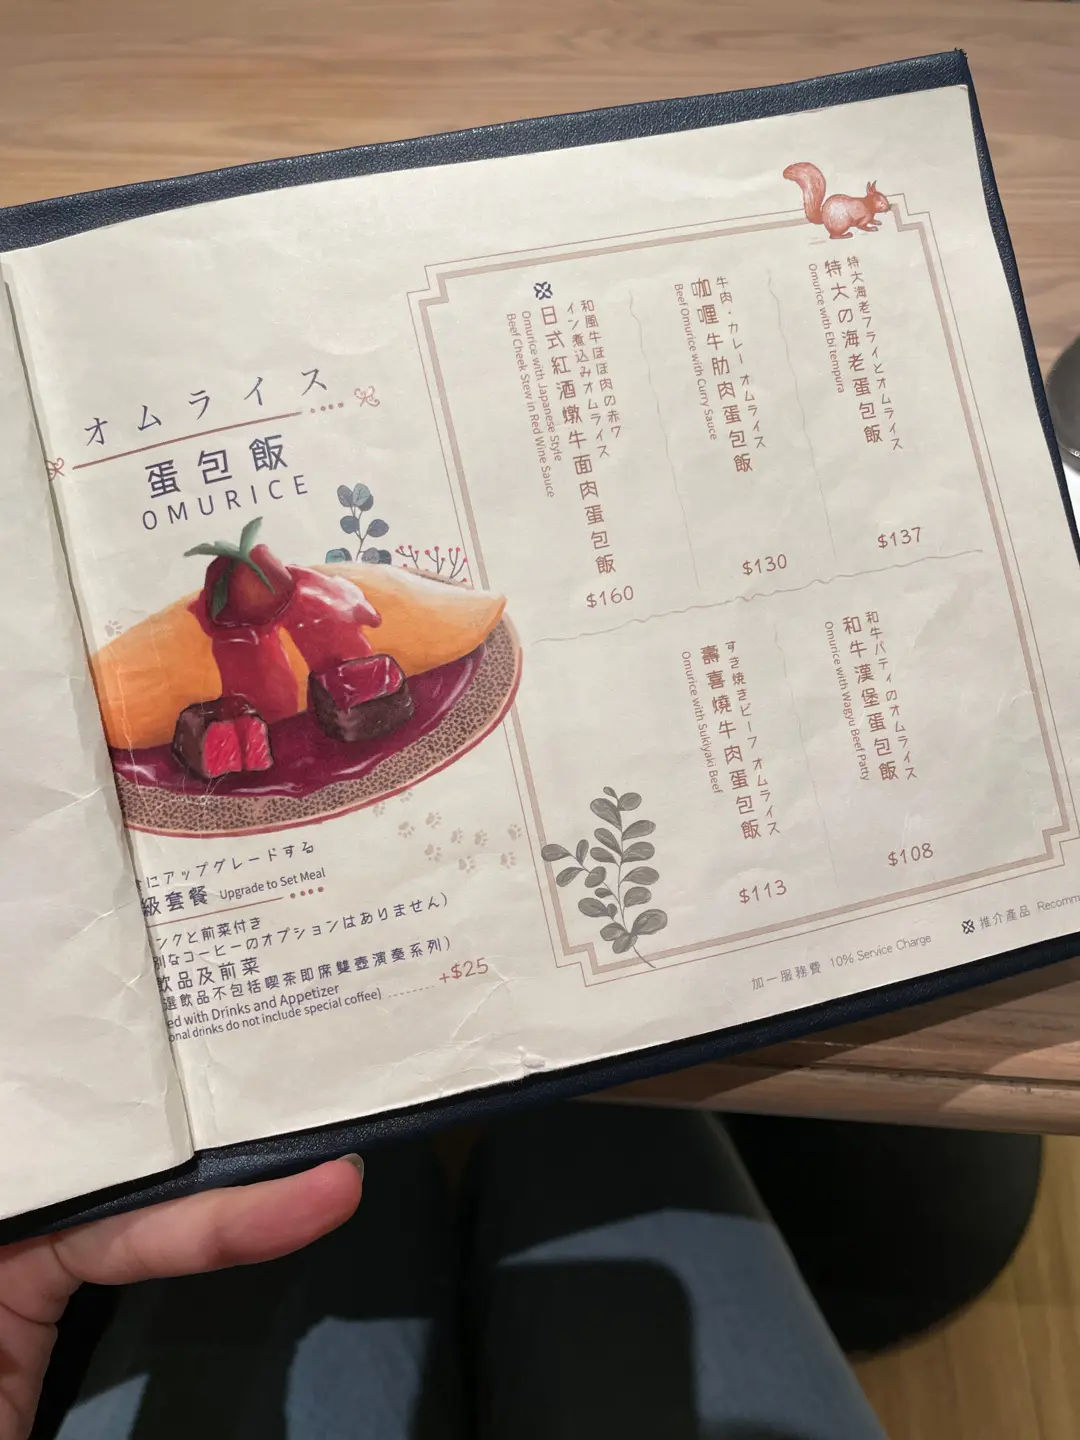 オムライス
蛋包飯
OMURICE
にアップグレードする
級套餐 Upgrade to Set Meal
ンクと前菜付き
別なコーヒーのオプションはありません)
飲品及前菜
選飲品不包括喫茶即席雙壺演奏系列)
ed with Drinks and Appetizer
onal drinks do not include special coffee) +$25
特大海老フライとオムライス
特大の海老蛋包飯
Omurice with Ebi tempura
$137
牛肉・カレー オムライス
咖喱牛肋肉蛋包飯
Beef Omurice with Curry Sauce
$130
和風牛ほほ肉の赤ワ
イン煮込みオムライス
日式紅酒燉牛面肉蛋包飯
Omurice with Japanese Style
Beef Cheek Stew in Red Wine Sauce
$160
和牛パティのオムライス
和牛漢堡蛋包飯
Omurice with Wagyu Beef Patty
$108
すき焼きビーフ オムライス
壽喜燒牛肉蛋包飯
Omurice with Sukiyaki Beef
$113
加一服務費 10% Service Charge
推介產品 Recomm